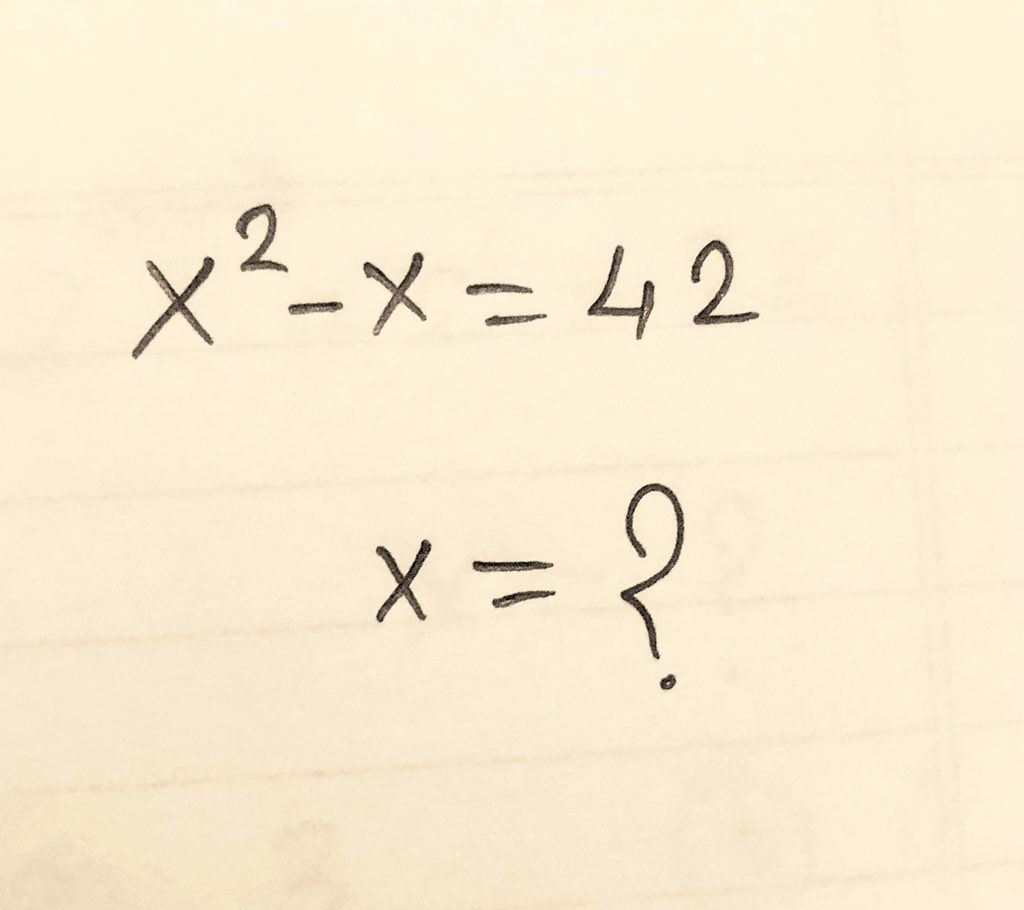 x² - x = 42
x = ?